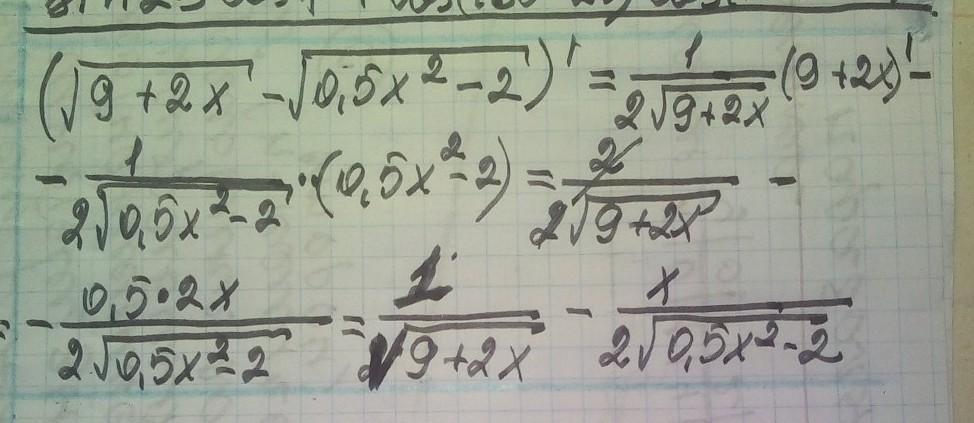 (√(9+2x) - √(0,5x² - 2))' = 1/(2√(9+2x)) (9+2x)' -
- 1/(2√(0,5x² - 2)) · (0,5x² - 2) = 2/(2√(9+2x)) -
= - (0,5·2x)/(2√(0,5x² - 2)) = 1/√(9+2x) - x/(2√(0,5x² - 2))